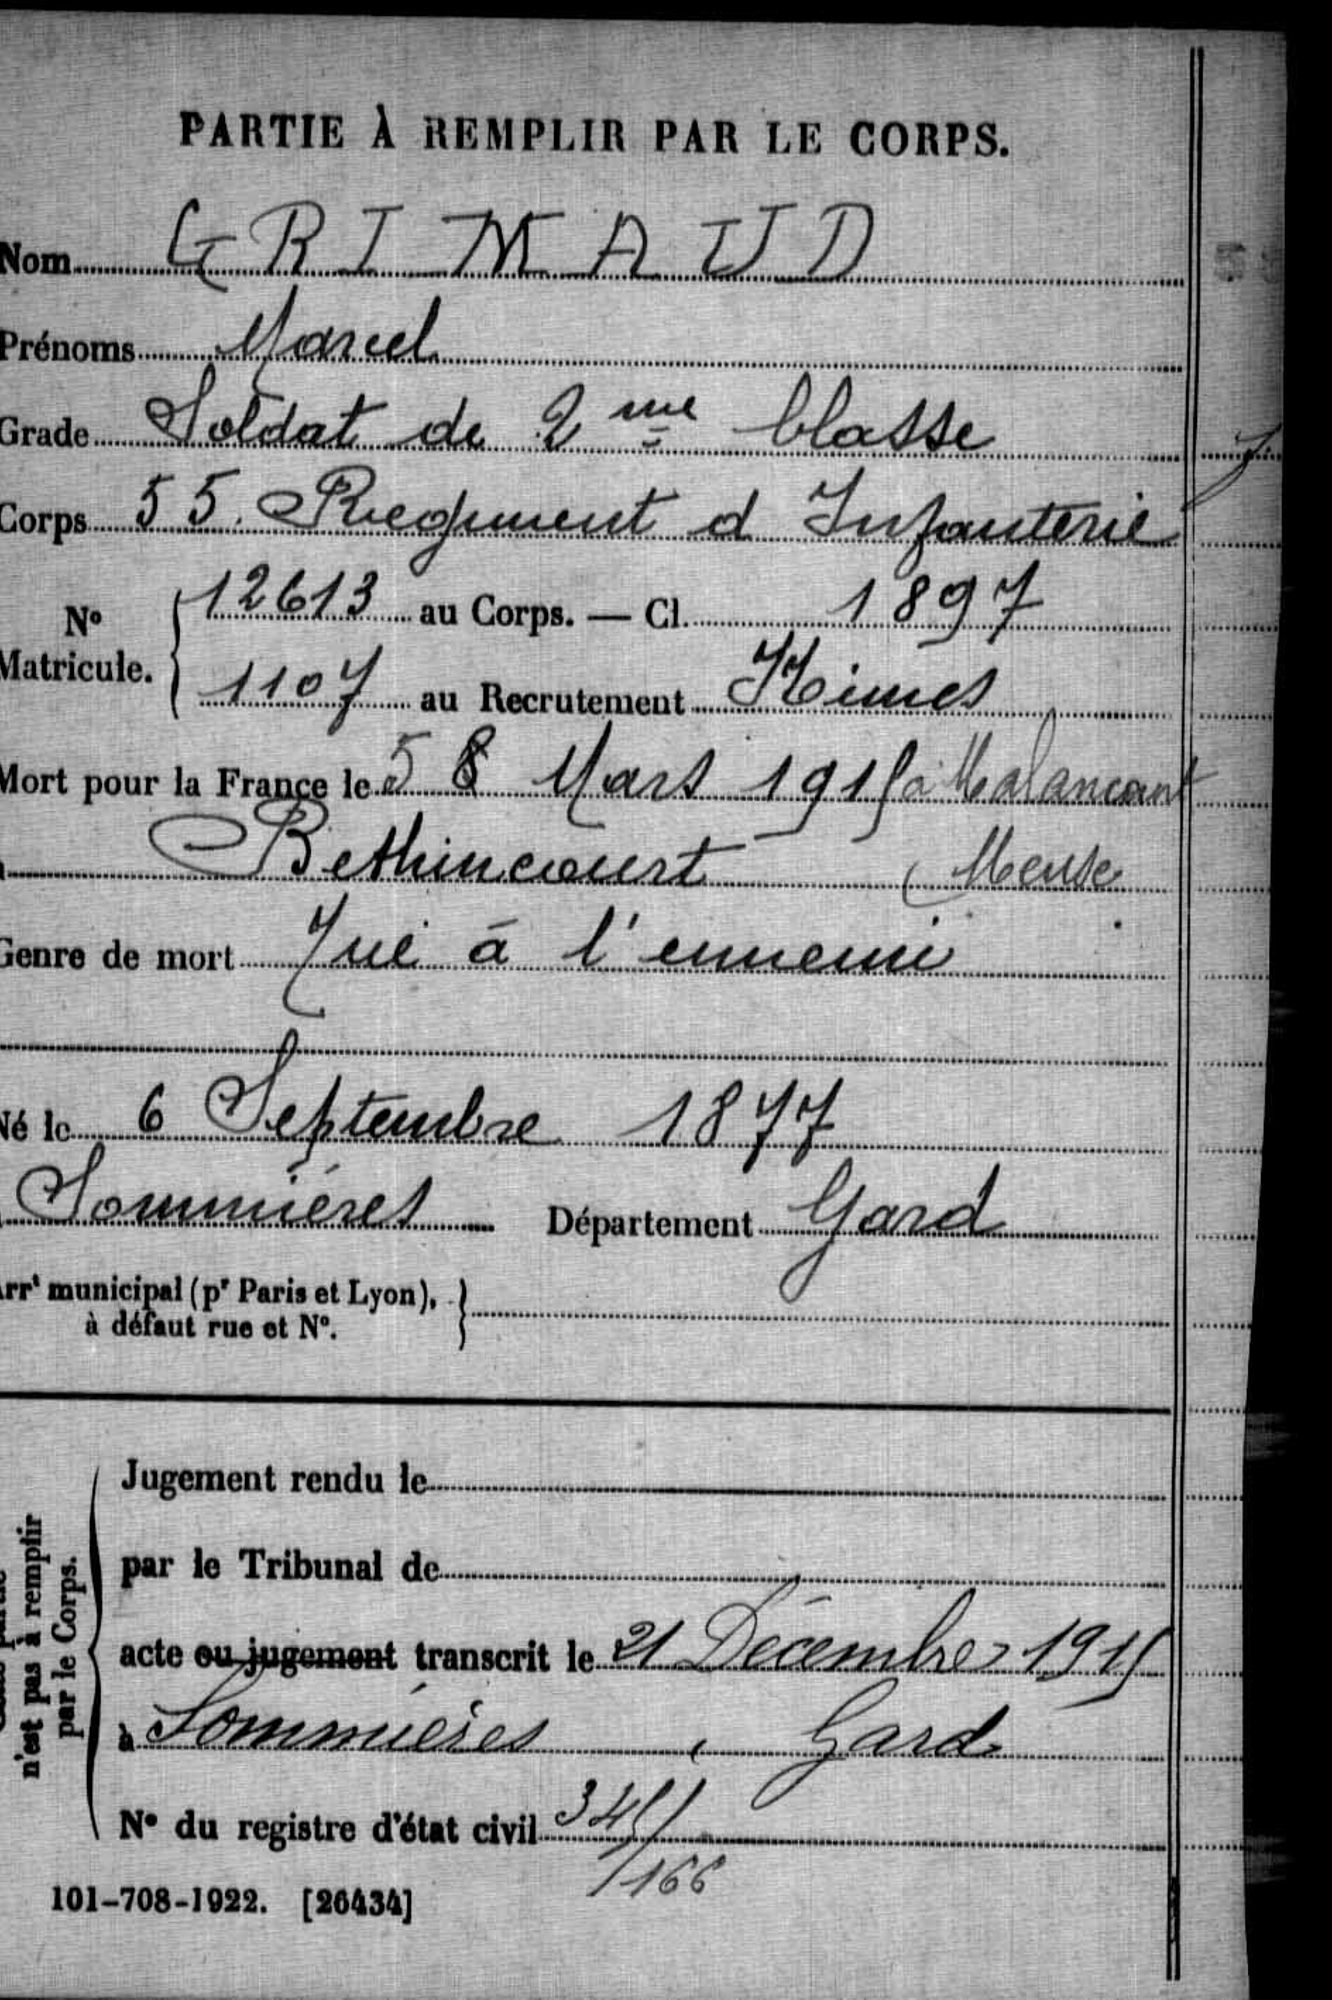 PARTIE À REMPLIR PAR LE CORPS.
Nom GRIMAUD
Prénoms Marcel
Grade Soldat de 2 me Classe
Corps 55. Regiment d Infanterie
No Matricule. 12613 au Corps. — Cl. 1897
1107 au Recrutement Nimes
Mort pour la France le 5 8 Mars 1915 à Malancourt
Bethincourt (Meuse
Genre de mort Tué à l'ennemi
Né le 6 Septembre 1877
Sommiéres Département Gard
Arrt municipal (pr Paris et Lyon),
à défaut rue et No.
n'est pas à remplir
par le Corps.
Jugement rendu le
par le Tribunal de
acte ou jugement transcrit le 21 Décembre 1915
à Sommiéres, Gard
No du registre d'état civil 345/
/166
101-708-1922. [26434]